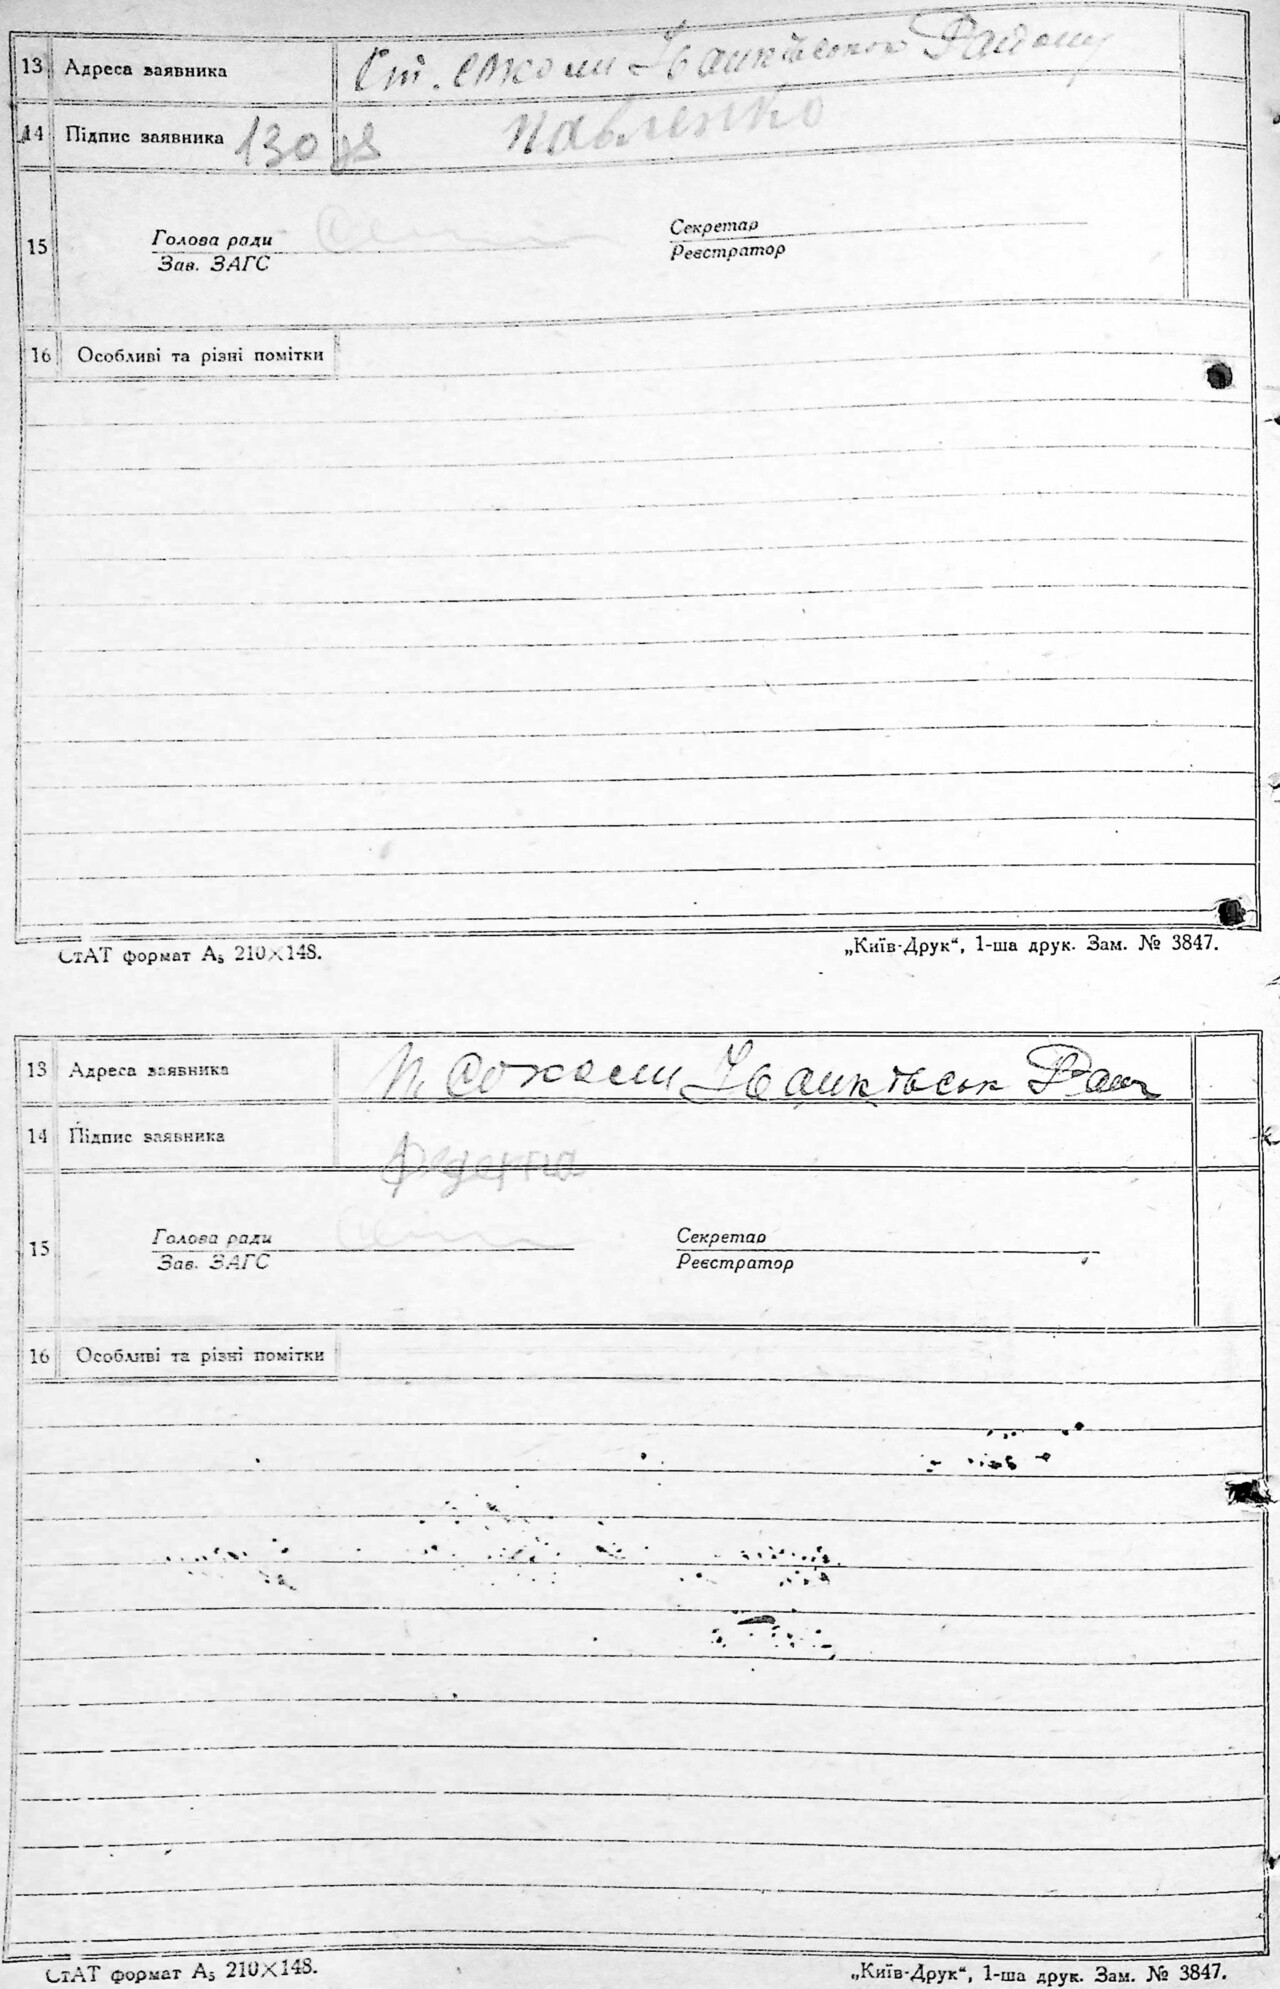 13 Адреса заявника Ст. Іванківського Району
14 Підпис заявника 130 Павленко
15 Голова ради Секретар
Зав. ЗАГС Реєстратор
16 Особливі та різні помітки
СтАТ формат А₅ 210×148. „Київ-Друк“, 1-ша друк. Зам. № 3847.
13 Адреса заявника Іванківськ Рай
14 Підпис заявника
15 Голова ради Секретар
Зав. ЗАГС Реєстратор
16 Особливі та різні помітки
СтАТ формат А₅ 210×148. „Київ-Друк“, 1-ша друк. Зам. № 3847.